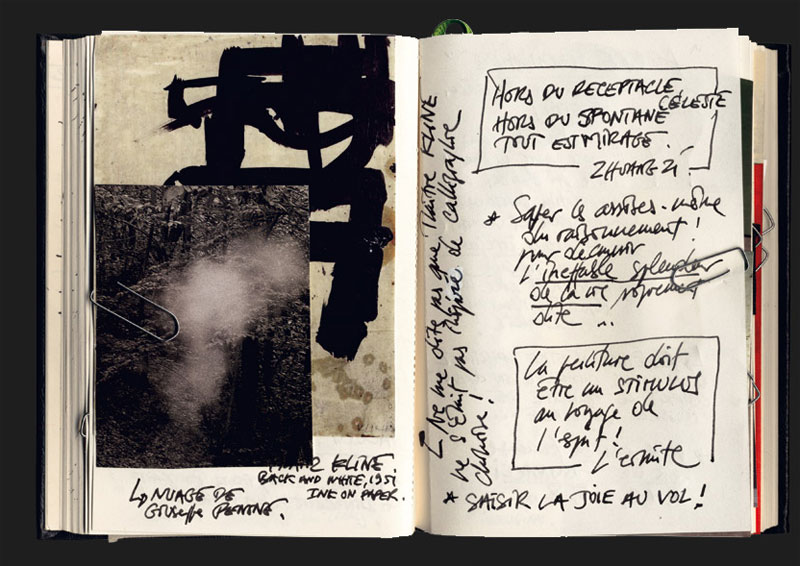 FRANZ KLINE.
BACK AND WHITE, 1951
INK ON PAPER.
NUAGE DE
GIUSEPPE PENONE.
Ne me dite pas que Maître KLINE
ne s'était pas inspiré de calligraphie
chinoise!
HORS DU RECEPTACLE
CÉLESTE
HORS DU SPONTANÉ
TOUT EST MIRAGE.
ZHUANGZI.
* Saper les assises-même
du raisonnement!
pour découvrir
l'ineffable splendeur
de la vie proprement
dite ...
La peinture doit
être un STIMULUS
au voyage de
l'esprit!
L'ermite
* SAISIR LA JOIE AU VOL!